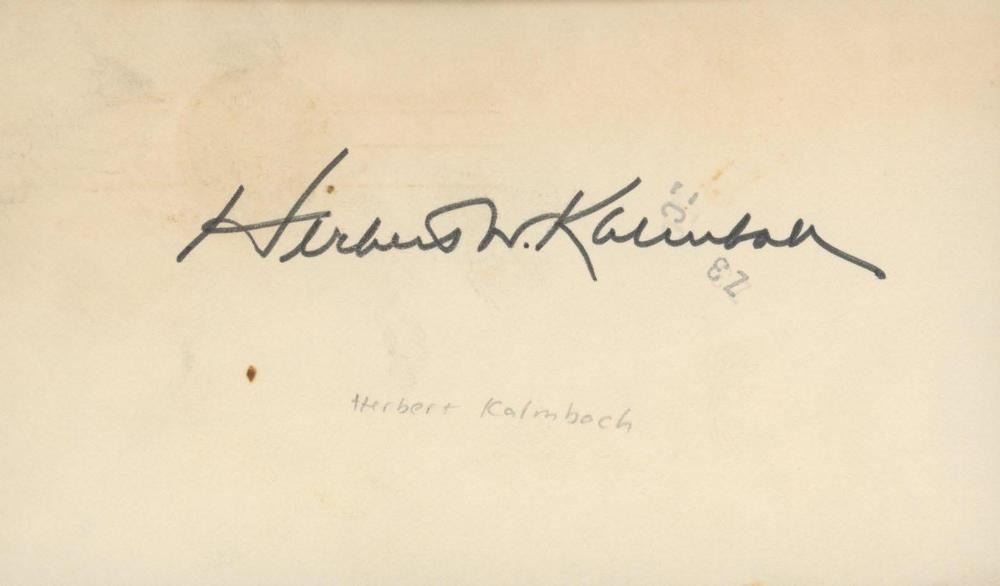 Herbert W. Kalmbach
Herbert Kalmbach